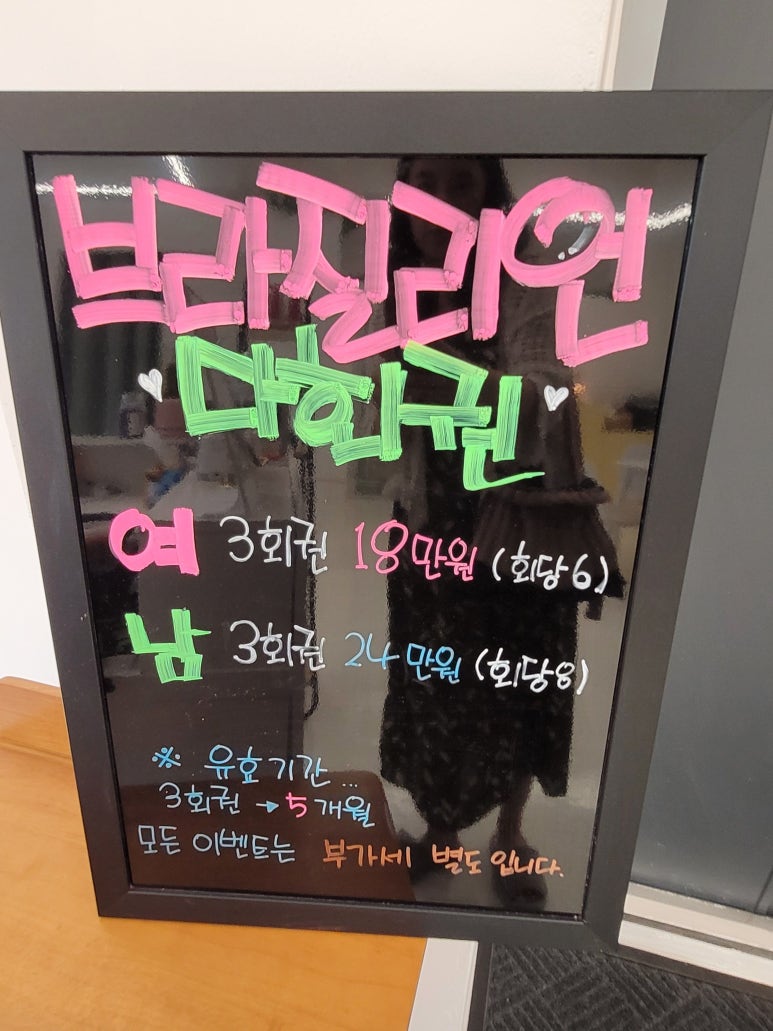 브라질리언
다회권
여 3회권 18만원 (회당6)
남 3회권 24만원 (회당8)
※ 유효기간...
3회권 → 5개월
모든 이벤트는 부가세 별도입니다.